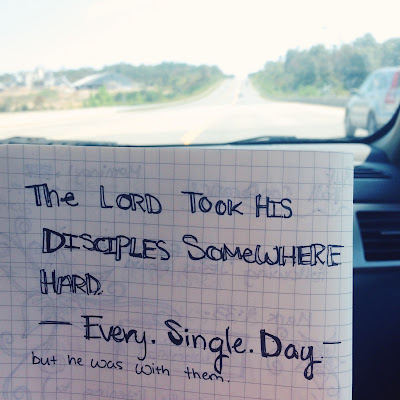 The LORD TOOK HIS
DISCIPLES SOMEWHERE
HARD.
— Every. Single. Day. —
but he was with them.